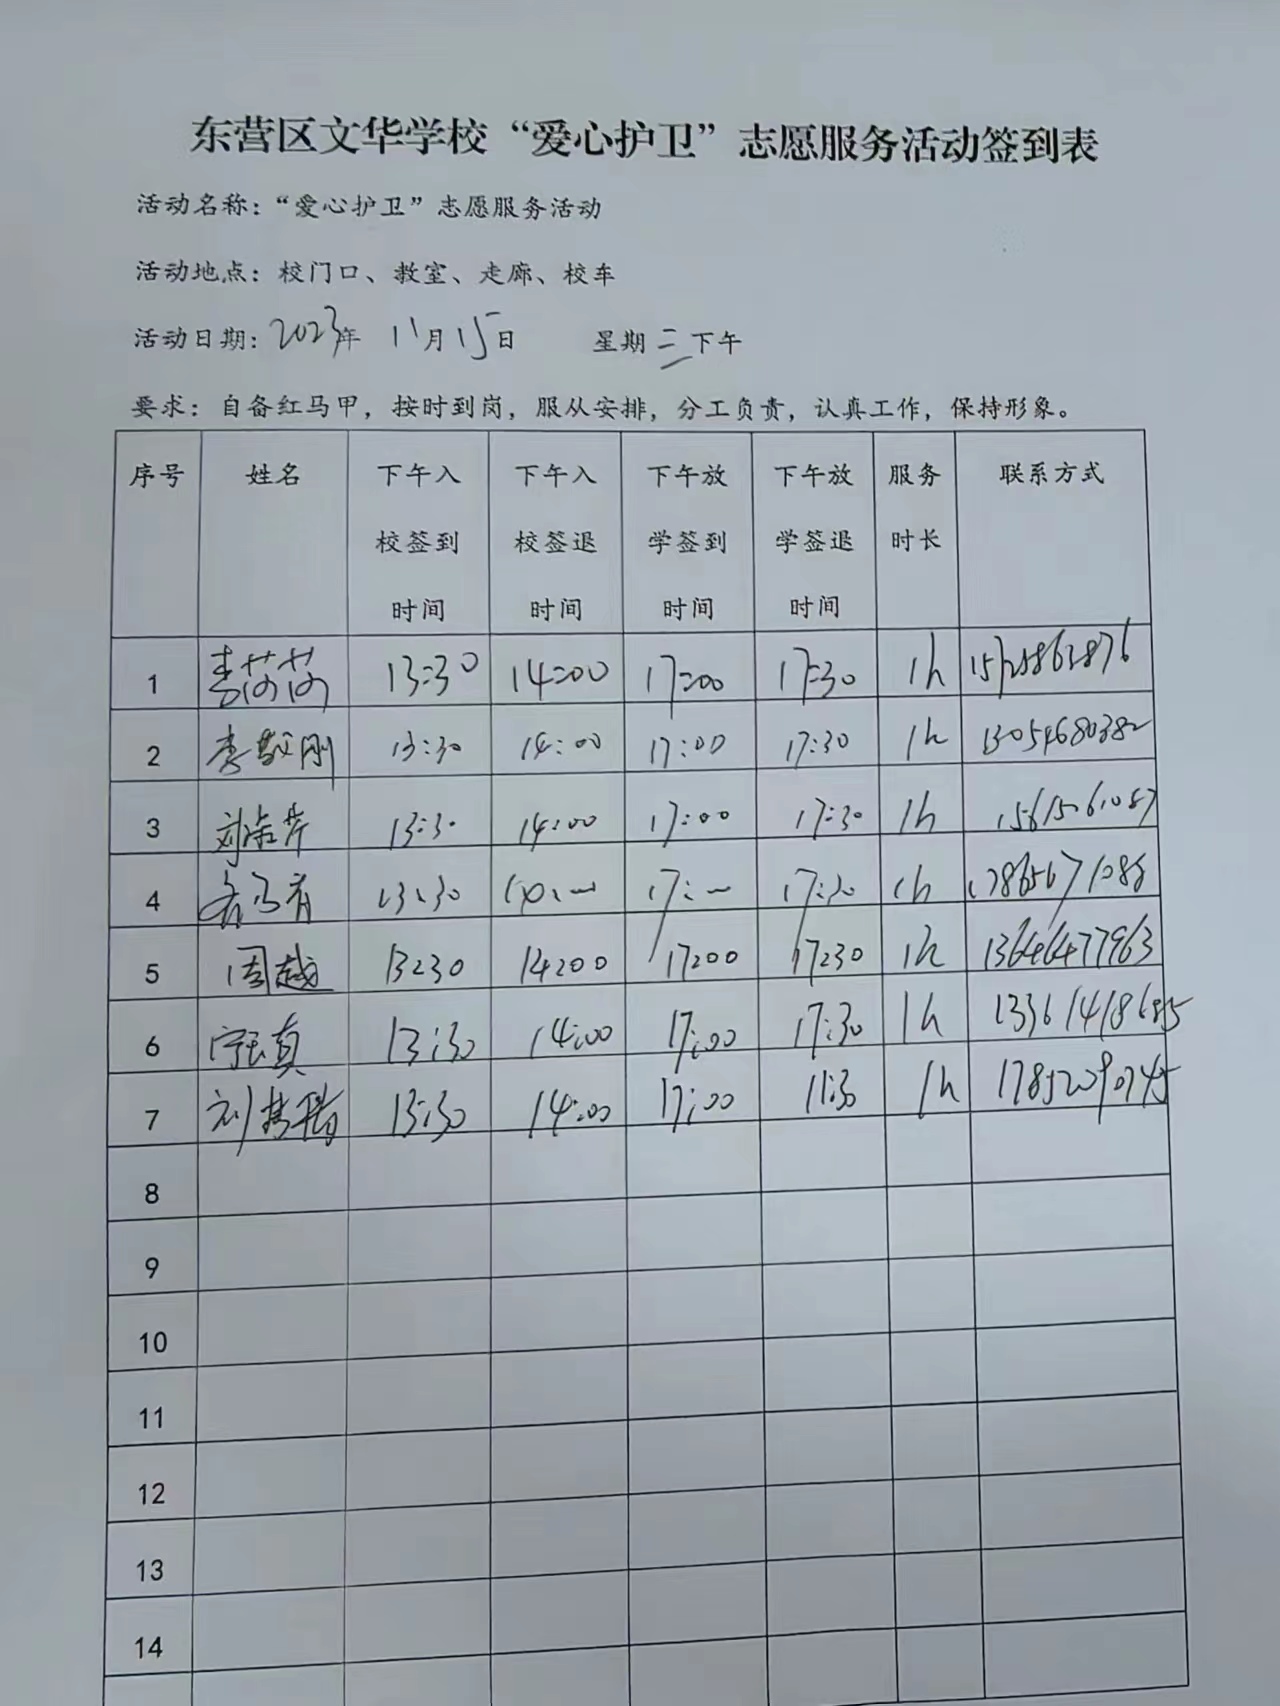 东营区文华学校“爱心护卫”志愿服务活动签到表
活动名称：“爱心护卫”志愿服务活动
活动地点：校门口、教室、走廊、校车
活动日期：2023年 11月15日 星期三下午
要求：自备红马甲，按时到岗，服从安排，分工负责，认真工作，保持形象。
序号 姓名 下午入校签到时间 下午入校签退时间 下午放学签到时间 下午放学签退时间 服务时长 联系方式
1 13:30 14:00 17:00 17:30 1h
2 李敬刚 13:30 14:00 17:00 17:30 1h 13054680382
3 13:30 14:00 17:00 17:30 1h 15615061087
4 13:30 17:30 1h
5 周越 13:30 14:00 17:00 17:30 1h 13646477963
6 13:30 14:00 17:00 17:30 1h
7 13:30 14:00 17:00 11:30 1h
8
9
10
11
12
13
14